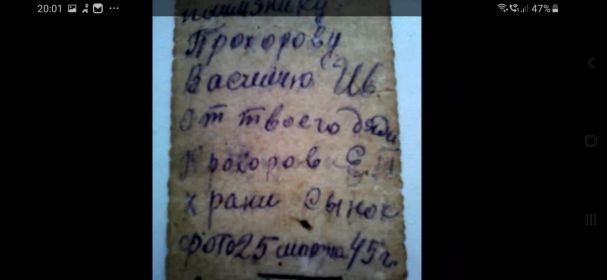 20:01 47%
племянику
Прохорову
Василию Ив.
От твоего дяди
Прохоров Е.П
храни сынок
фото 25 марта 45 г.